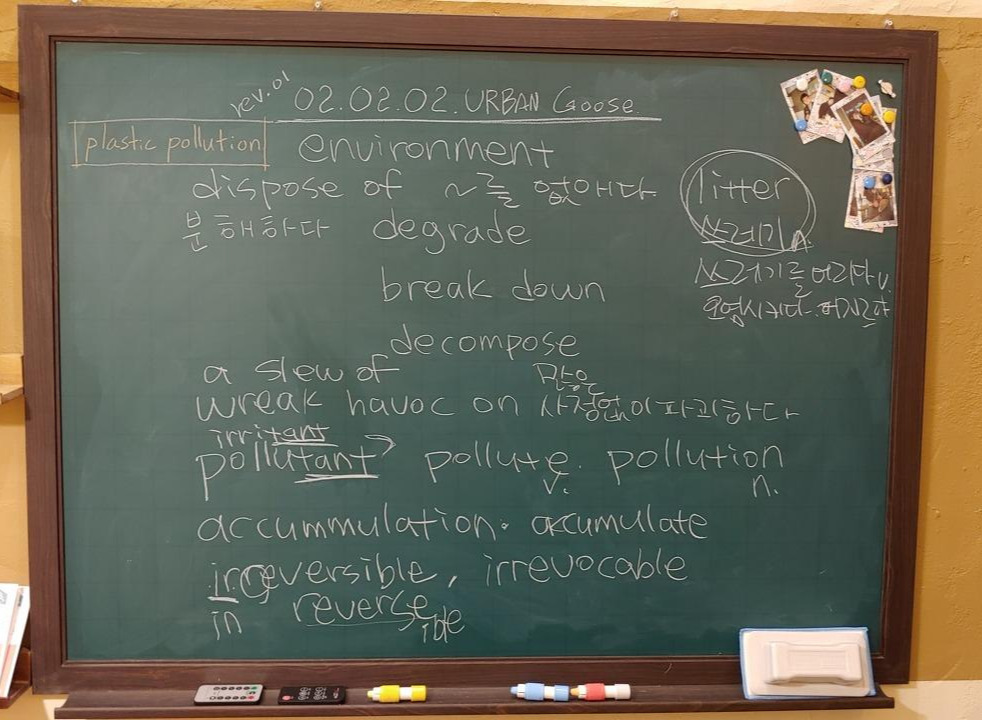 rev.01
02.02.02. URBAN Goose
plastic pollution
environment
dispose of ~를 없애다
litter
쓰레기 n.
쓰레기를 버리다 v.
오염시키다. 어지르다
분해하다 degrade
break down
decompose
a slew of 많은
wreak havoc on 사정없이 파괴하다
irritant
pollutant pollute. pollution
v. n.
accummulation. accumulate
irreversible, irrevocable
in reverse ible